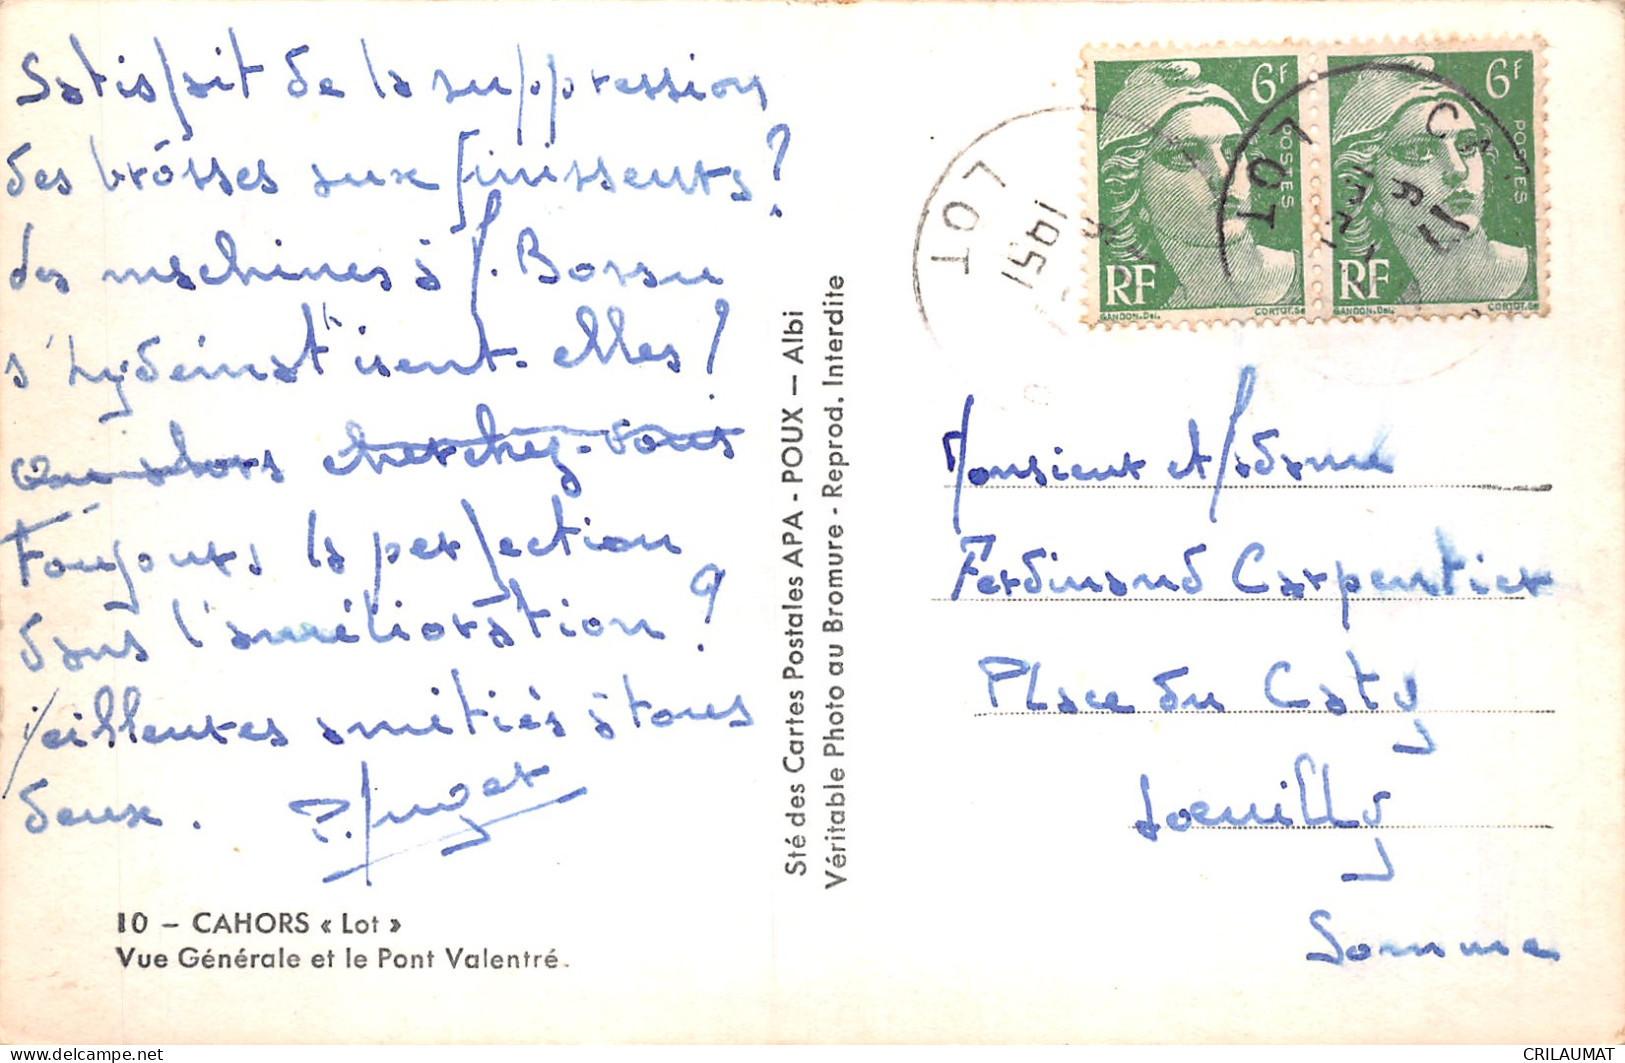 Satisfait de la suppression
des brosses aux finisseurs ?
des machines à J. Bossu
s'hydeinat'isent-elles ?
cherchez-vous
Toujours la perfection
dans l'amélioration ?
Meilleures amitiés à tous
deux.
10 – CAHORS « Lot »
Vue Générale et le Pont Valentré.
Sté des Cartes Postales APA - POUX – Albi
Véritable Photo au Bromure - Reprod. Interdite
6F POSTES RF
GANDON.Del. CORTOT.Sc
6F POSTES RF
GANDON.Del. CORTOT.Sc
LOT
1951
LOT
Monsieur et Madame
Ferdinand Carpentier
Place du Caty
Loeuilly
Somme
CRILAUMAT